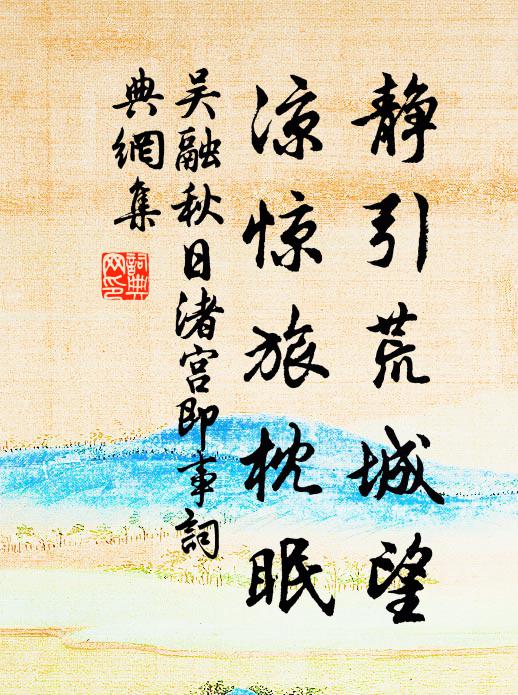 静引荒城望
凉惊旅枕眠
吴融秋日渚宫即事词
典網集
詞典網印